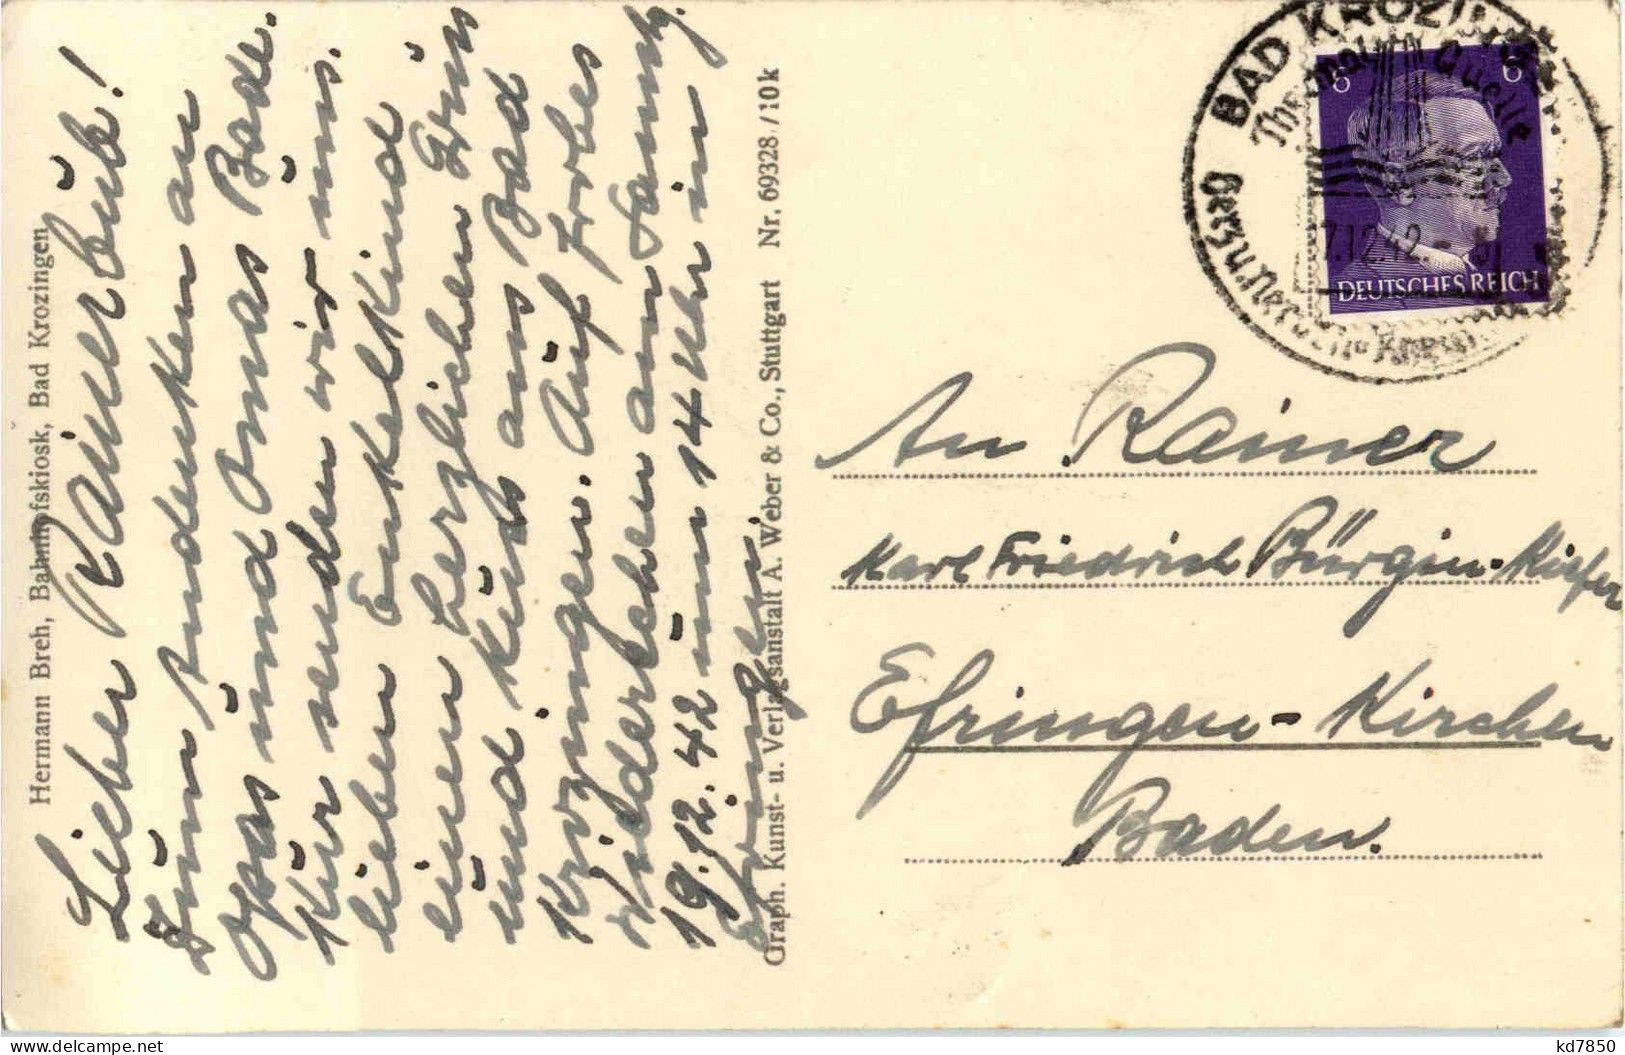 Hermann Breh, Bahnhofskiosk, Bad Krozingen
Lieber Rainerbub!
Zum Andenken an
Opas und Omas Bade.
Kur senden wir uns.
lieben Enkelkind
einen herzlichen Gruß
und Kuss aus Bad
Krozingen. Auf frohes
Wiedersehen am Samstg.
19.12.42 um 14 Uhr in
Efringen.
Graph. Kunst- u. Verlagsanstalt A. Weber & Co., Stuttgart Nr. 69328 / 10k
BAD KROZINGEN
Thermal Quelle
7.12.42.
6 6
DEUTSCHES REICH
An Rainer
Karl Friedrich Bürgin-Kiefer
Efringen-Kirchen
Baden.
www.delcampe.net
kd7850